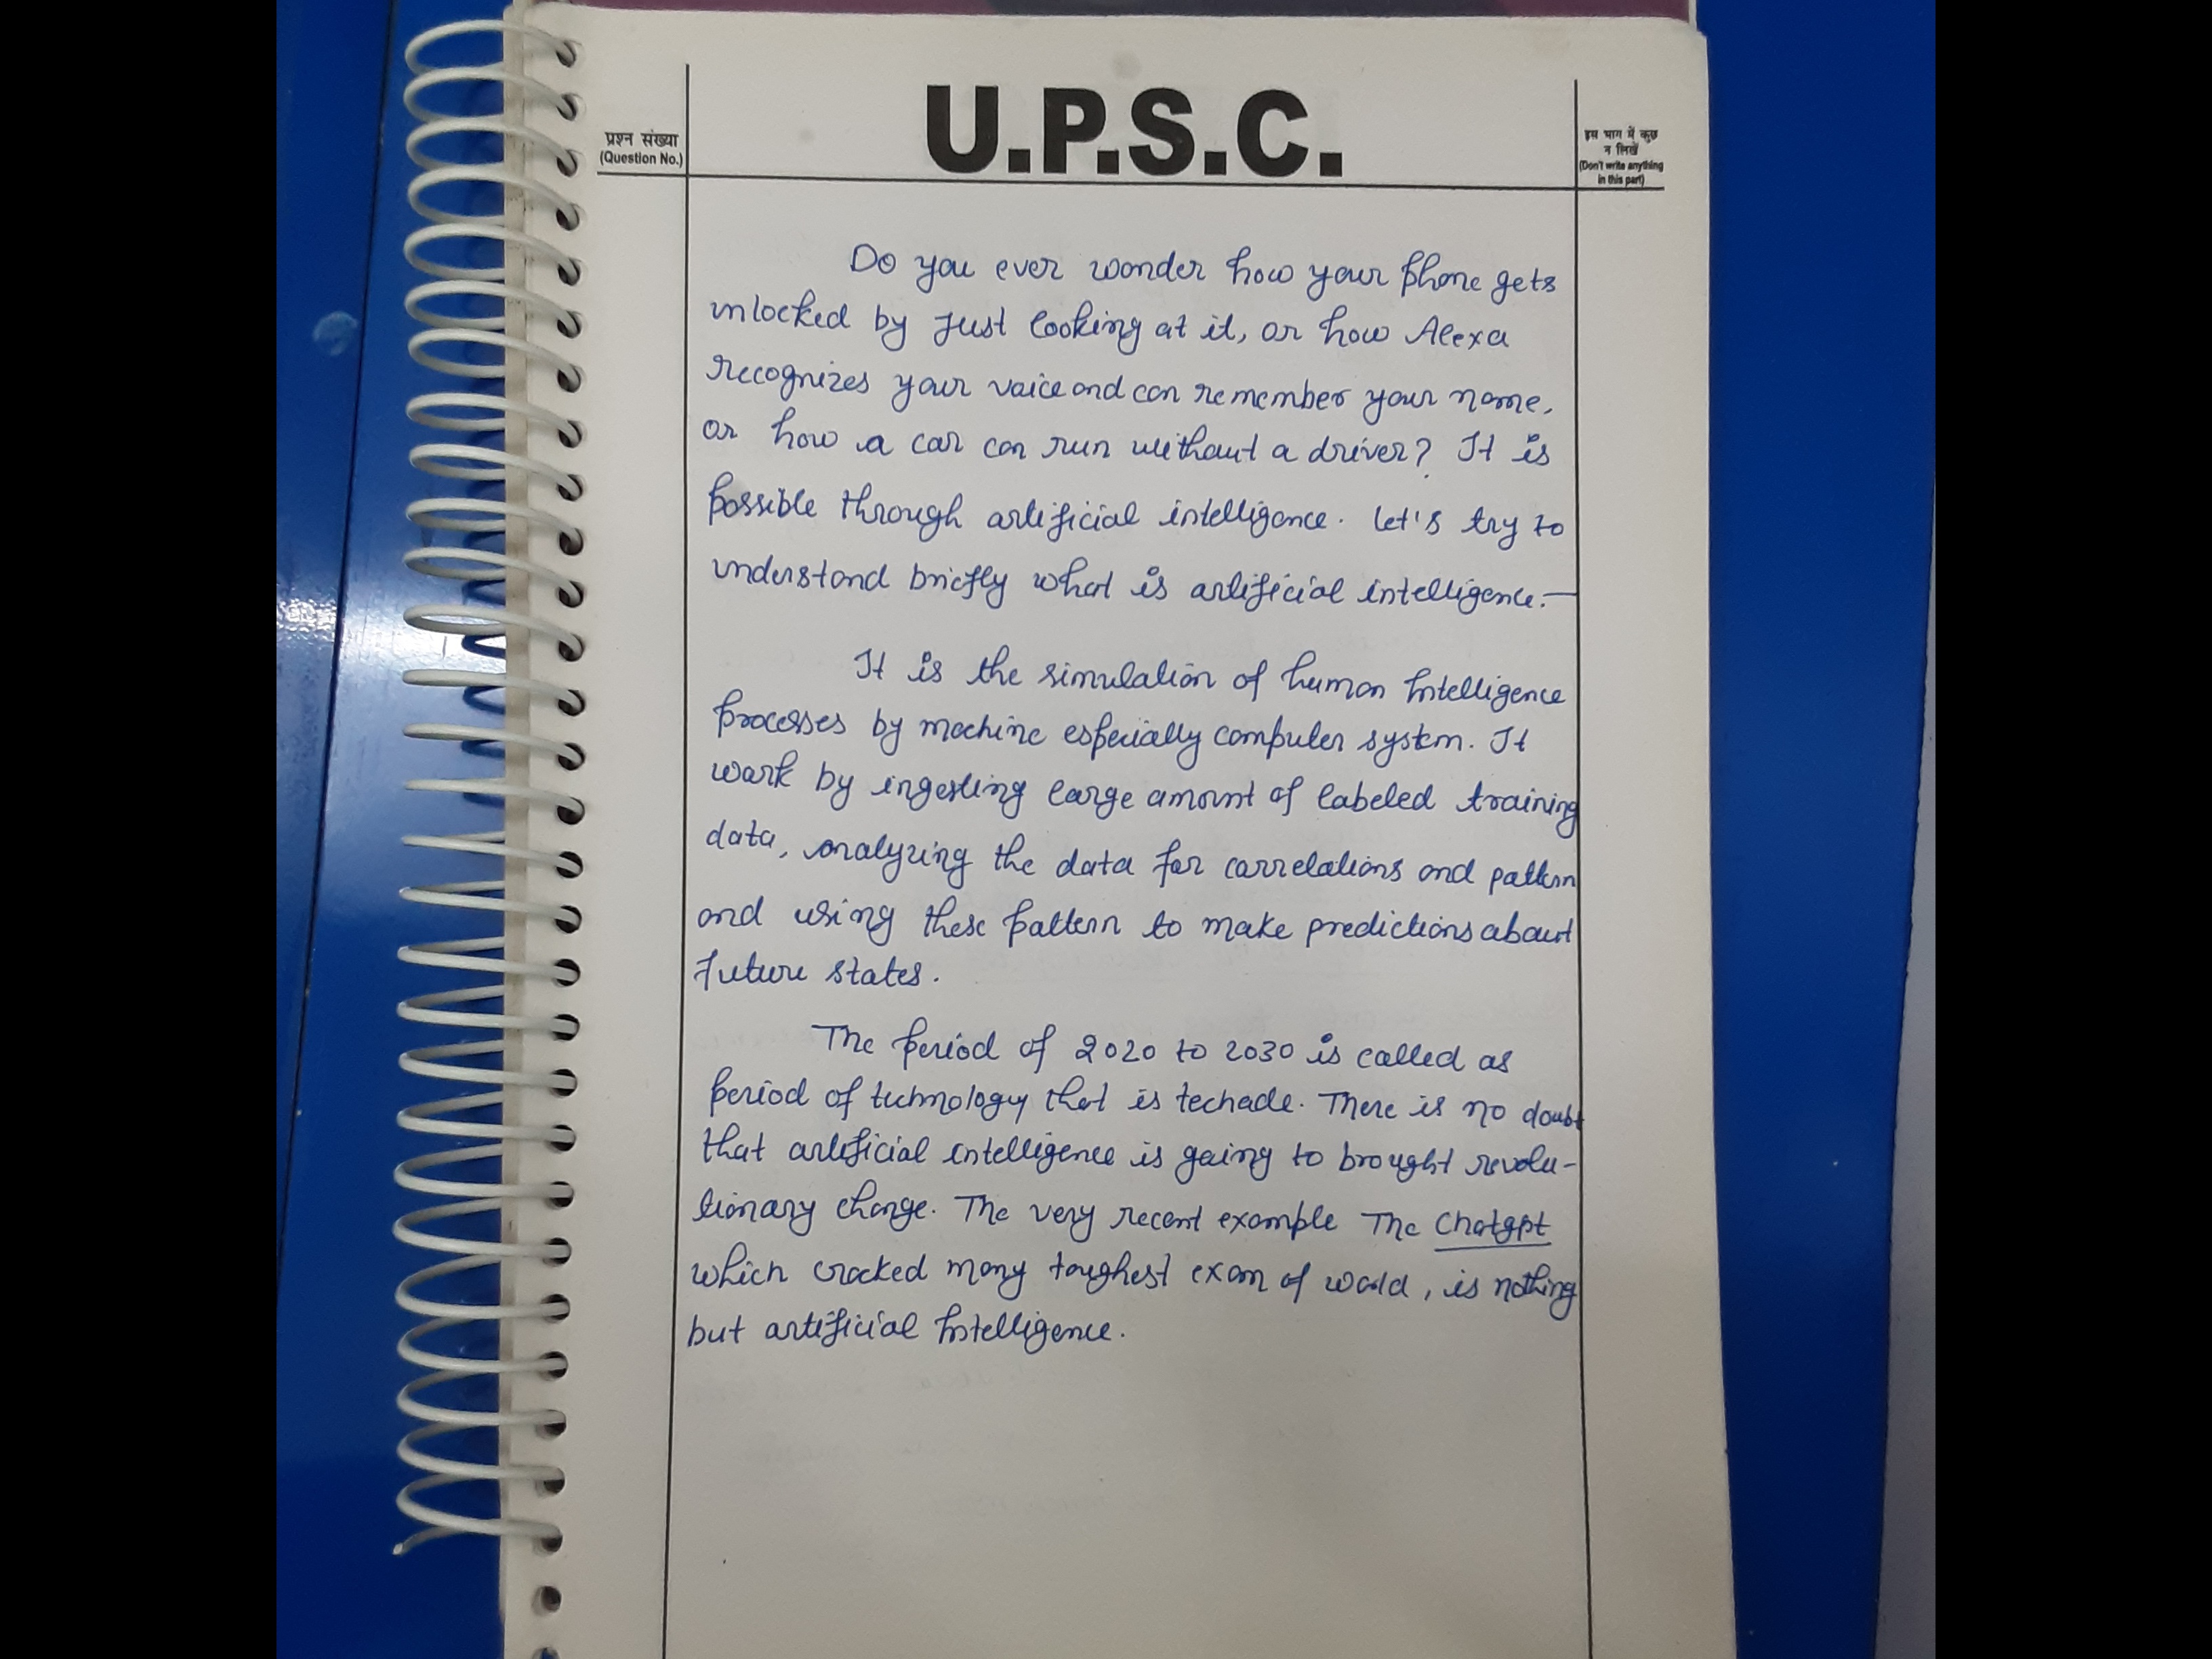 U.P.S.C.
प्रश्न संख्या
(Question No.)
इस भाग में कुछ
न लिखें
(Don't write anything
in this part)
Do you ever wonder how your phone gets
unlocked by just looking at it, or how Alexa
recognizes your voice and can remember your name,
or how a car can run without a driver? It is
possible through artificial intelligence. Let's try to
understand briefly what is artificial intelligence.—
It is the simulation of human Intelligence
processes by machine especially computer system. It
work by ingesting large amount of labeled training
data, analyzing the data for correlations and pattern
and using these pattern to make predictions about
future states.
The period of 2020 to 2030 is called as
period of technology that is techade. There is no doubt
that artificial intelligence is going to brought revolu-
tionary change. The very recent example The Chatgpt
which cracked many toughest exam of world, is nothing
but artificial Intelligence.